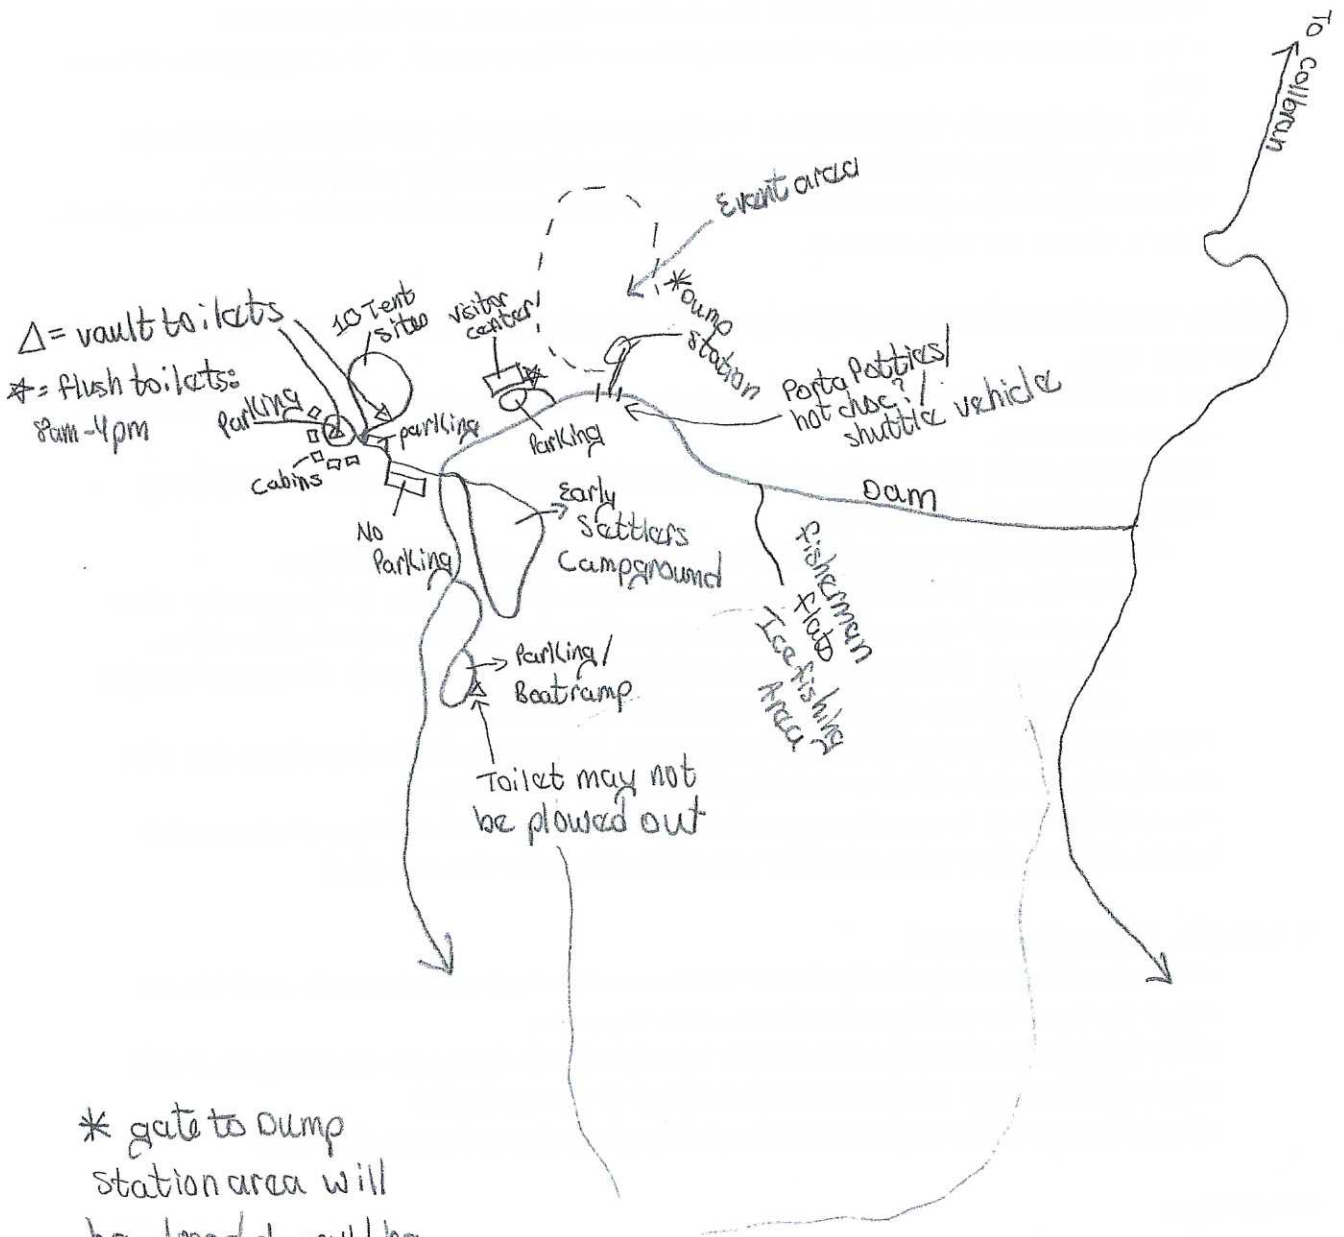 To Collbran
Event area
*Dump
station
Δ= vault toilets
☆= flush toilets:
8am-4pm
10 Tent
sites
visitor
center/
Parking
parking
Parking
Cabins
Porta Potties/
hot choc?/
shuttle vehicle
No
Parking
Early
Settlers
Campground
Dam
Fisherman
flats
Ice fishing
Area
Parking/
Boatramp
Toilet may not
be plowed out
* gate to Dump
station area will